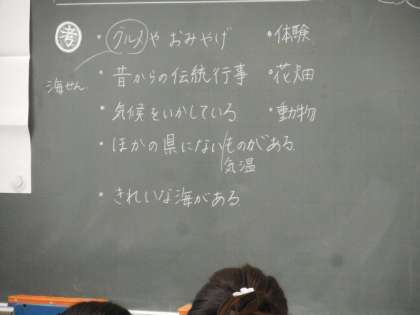 考 ・グルメや おみやげ ・体験
海せん
・昔からの伝統行事 ・花畑
・気候をいかしている ・動物
・ほかの県にないものがある
気温
・きれいな海がある